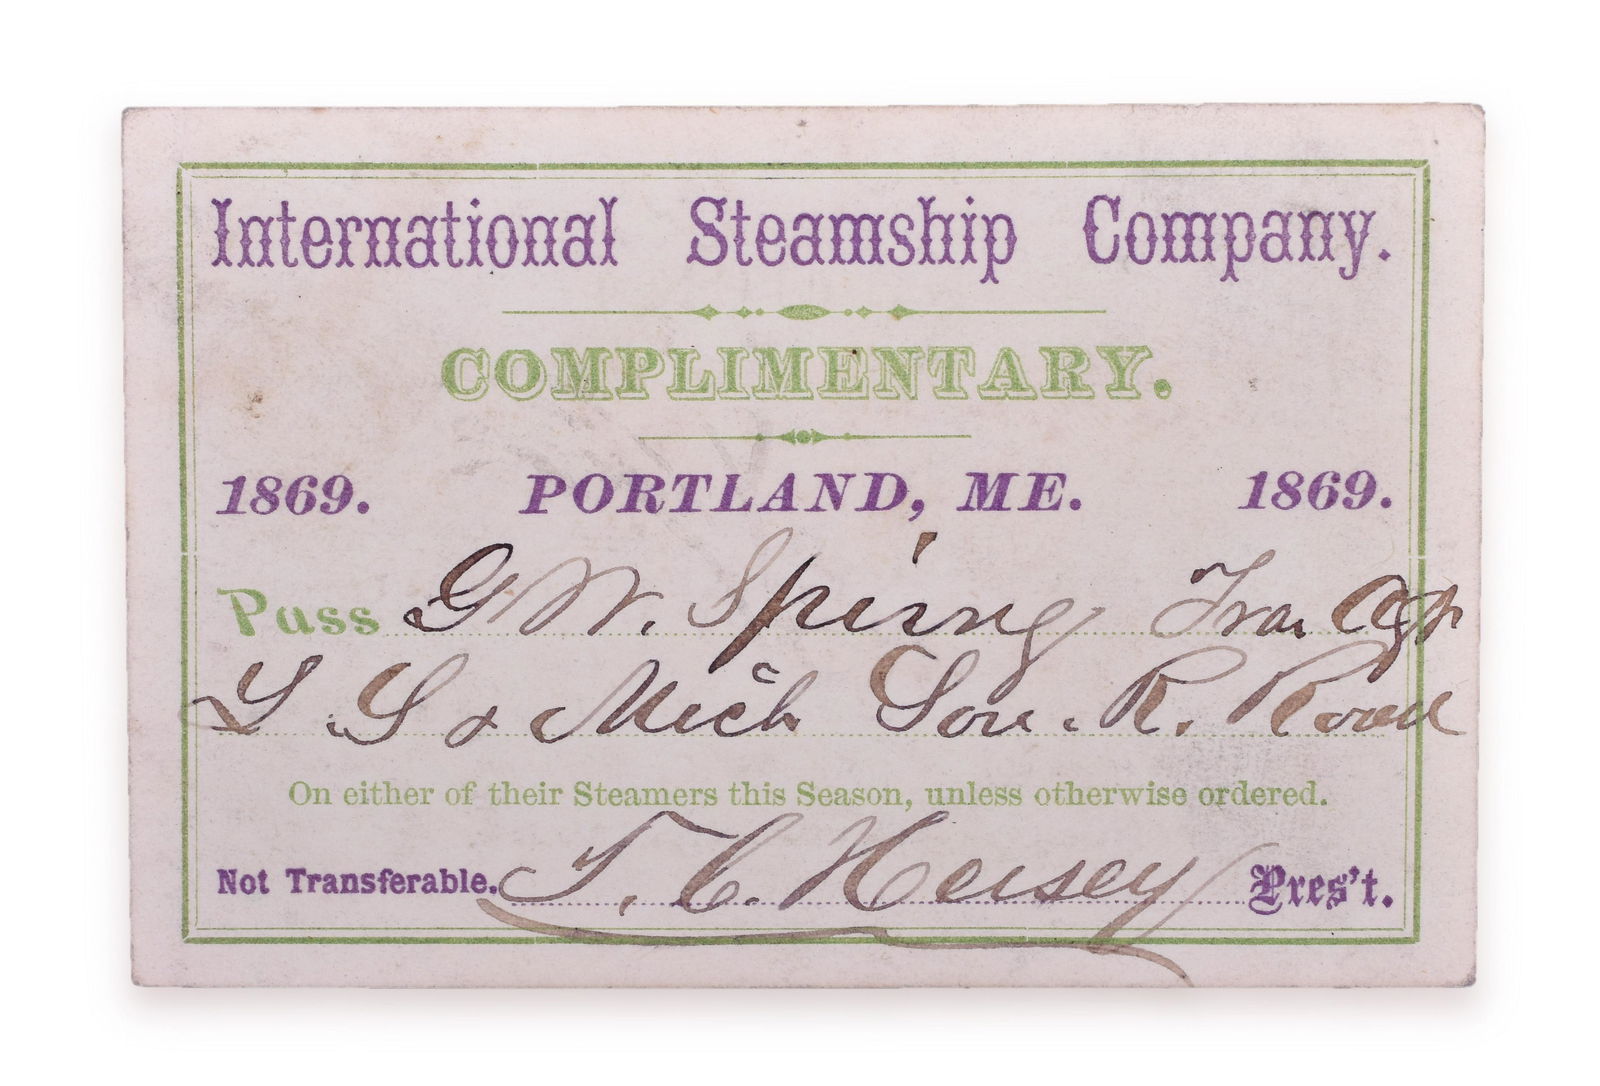 International Steamship Company.
COMPLIMENTARY.
1869. PORTLAND, ME. 1869.
Pass G W. Spring Tra. Agt
L. S & Mich Sou. R. Road
On either of their Steamers this Season, unless otherwise ordered.
Not Transferable. T. C. Hersey Pres't.